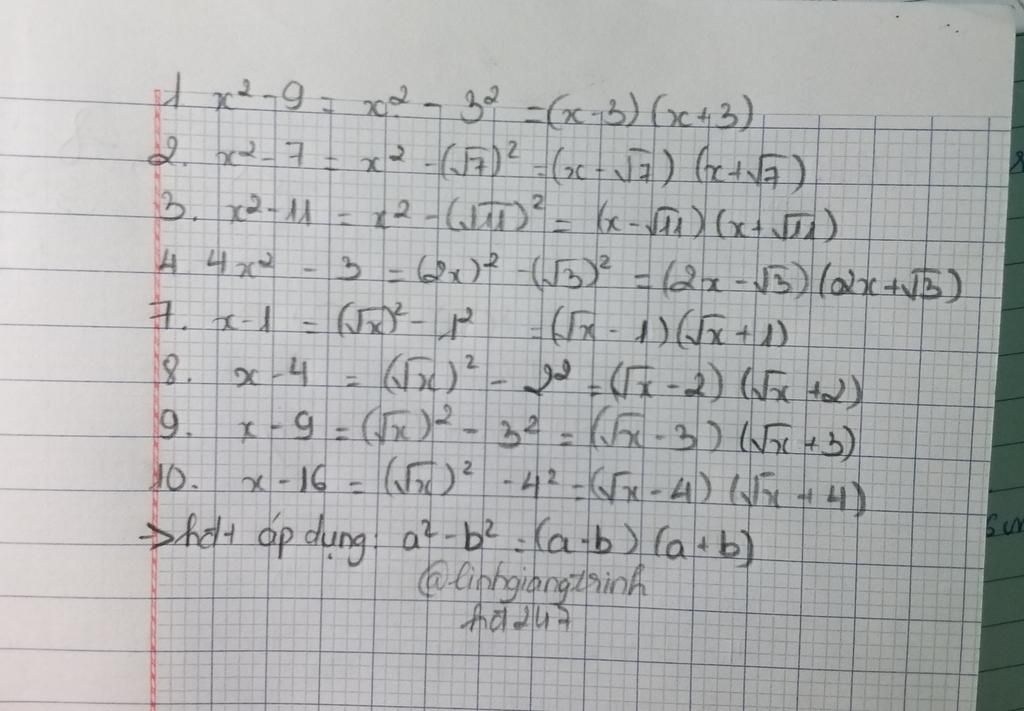 1 x² - 9 = x² - 3² = (x-3)(x+3)
2. x² - 7 = x² - (√7)² = (x-√7)(x+√7)
3. x² - 11 = x² - (√11)² = (x-√11)(x+√11)
4 4x² - 3 = (2x)² - (√3)² = (2x-√3)(2x+√3)
7. x-1 = (√x)² - 1² = (√x - 1)(√x + 1)
8. x-4 = (√x)² - 2² = (√x - 2)(√x + 2)
9. x - 9 = (√x)² - 3² = (√x - 3)(√x + 3)
10. x - 16 = (√x)² - 4² = (√x - 4)(√x + 4)
→ hđt áp dụng a² - b² = (a-b)(a+b)
@linhgiangtrinh
hd247